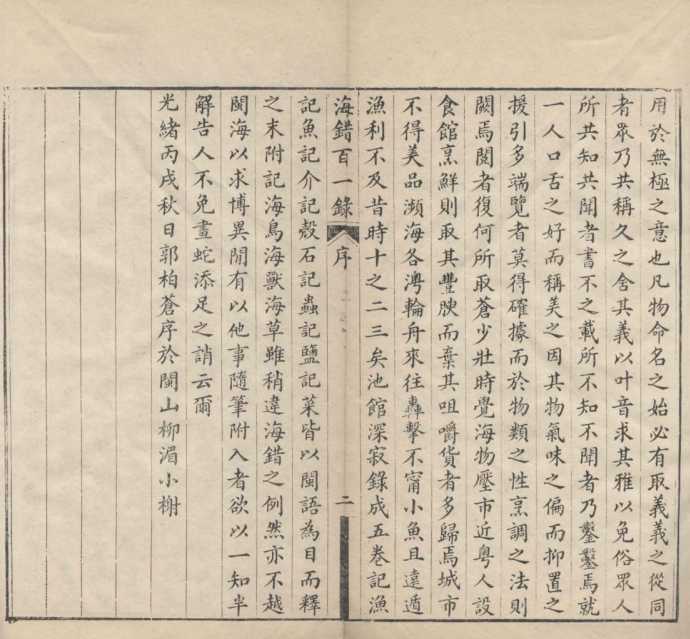 用於無極之意也凡物命名之始必有取義義之從同
者眾乃共稱久之舍其義以叶音求其雅以免俗眾人
所共知共聞者書不之載所不知不聞者乃鑿鑿焉就
一人口舌之好而稱美之因其物氣味之偏而抑置之
援引多端覽者莫得確據而於物類之性烹調之法則
闕焉閱者復何所取蒼少壯時覺海物壓市近粵人設
食館烹鮮則取其豐腴而棄其咀嚼貨者多歸焉城市
不得美品瀕海各灣輪舟來往轟擊不甯小魚且遠遁
漁利不及昔時十之二三矣池館深寂錄成五卷記漁
海錯百一錄 序 二
記魚記介記殼石記蟲記鹽記菜皆以閩語為目而釋
之末附記海鳥海獸海草雖稍違海錯之例然亦不越
閩海以求博異聞有以他事隨筆附入者欲以一知半
解告人不免畫蛇添足之誚云爾
光緒丙戌秋日郭柏蒼序於閩山柳湄小榭